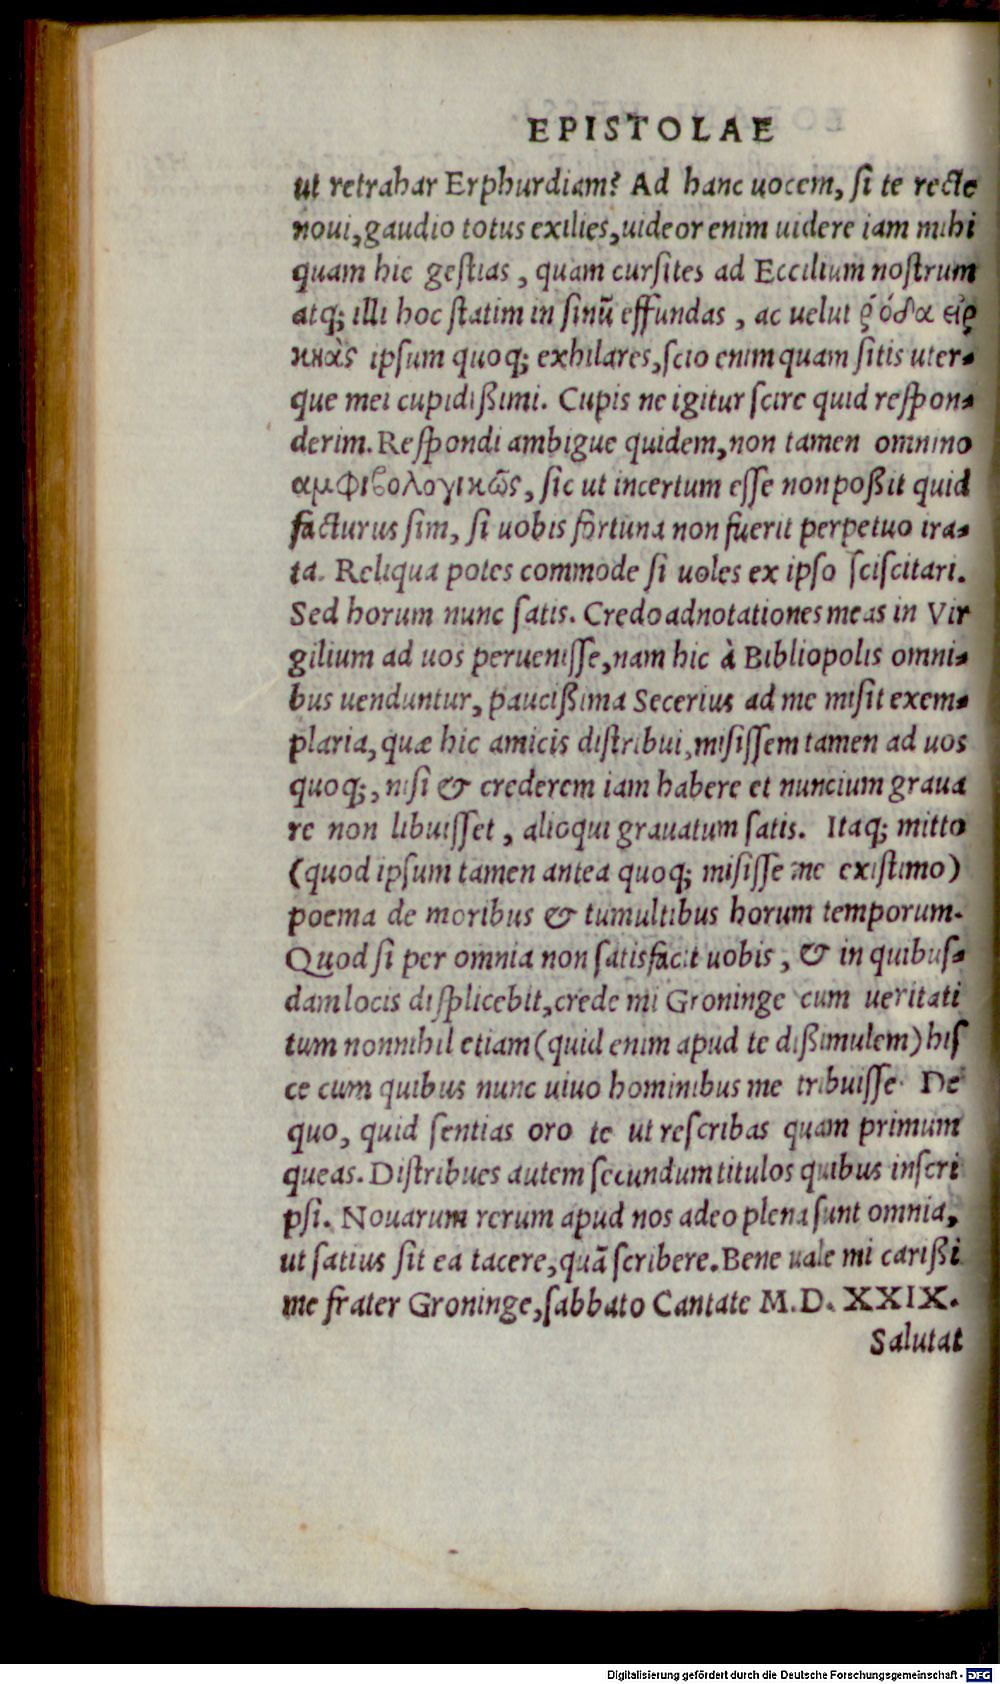 EPISTOLAE
ut retrahar Erphurdiam? Ad hanc uocem, si te recte
noui, gaudio totus exilies, uideor enim uidere iam mihi
quam hic gestias, quam cursites ad Eccilium nostrum
atq; illi hoc statim in sinũ effundas, ac uelut ῥόδα εἰρ
ηκὼς ipsum quoq; exhilares, scio enim quam sitis uter-
que mei cupidißimi. Cupis ne igitur scire quid respon-
derim. Respondi ambigue quidem, non tamen omnino
αμφιβολογικῶς, sic ut incertum esse non poßit quid
facturus sim, si uobis fortuna non fuerit perpetuo ira-
ta. Reliqua potes commode si uoles ex ipso sciscitari.
Sed horum nunc satis. Credo adnotationes meas in Vir
gilium ad uos peruenisse, nam hic à Bibliopolis omni-
bus uenduntur, paucißima Secerius ad me misit exem-
plaria, quæ hic amicis distribui, misissem tamen ad uos
quoq;, nisi & crederem iam habere et nuncium graua
re non libuisset, alioqui grauatum satis. Itaq; mitto
(quod ipsum tamen antea quoq; misisse me existimo)
poema de moribus & tumultibus horum temporum.
Quod si per omnia non satisfacit uobis, & in quibus-
dam locis displicebit, crede mi Groninge cum ueritati
tum nonnihil etiam (quid enim apud te dißimulem) his
ce cum quibus nunc uiuo hominibus me tribuisse. De
quo, quid sentias oro te ut rescribas quam primum
queas. Distribues autem secundum titulos quibus inscri
psi. Nouarum rerum apud nos adeo plena sunt omnia,
ut satius sit ea tacere, quã scribere. Bene uale mi carißi
me frater Groninge, sabbato Cantate M.D. XXIX.
Salutat
Digitalisierung gefördert durch die Deutsche Forschungsgemeinschaft - DFG